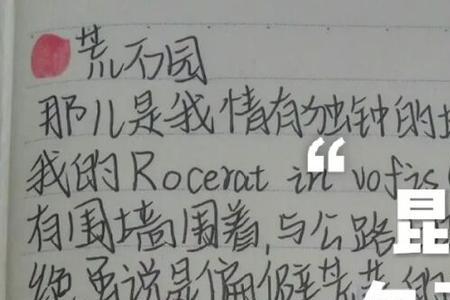 荒石园
那儿是我情有独钟的
我的Rocerat in vofis
有围墙围着,与公路
绝再说是偏僻荒芜的
“
昆